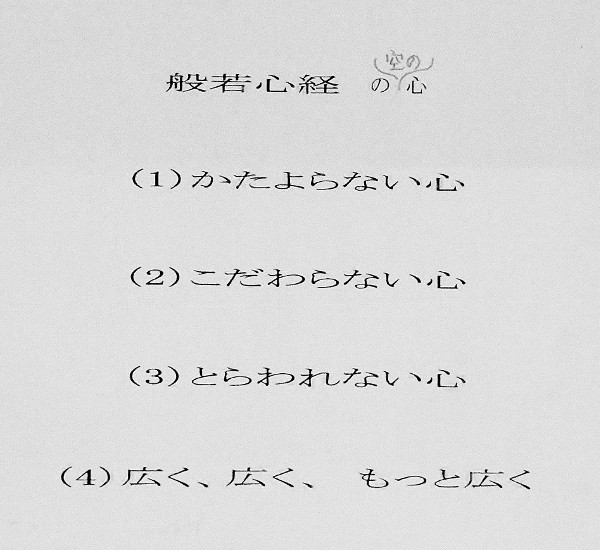 般若心経 の空の心
(1)かたよらない心
(2)こだわらない心
(3)とらわれない心
(4)広く、広く、 もっと広く